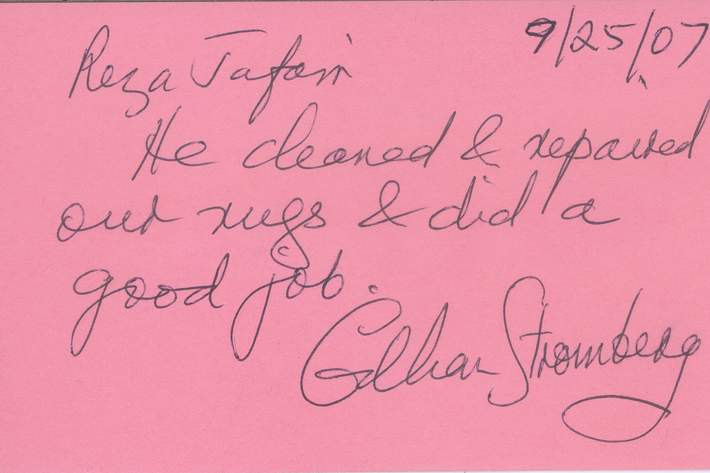 9/25/07
Reza Jafari
He cleaned & repaired
our rugs & did a
good job.
Stromberg